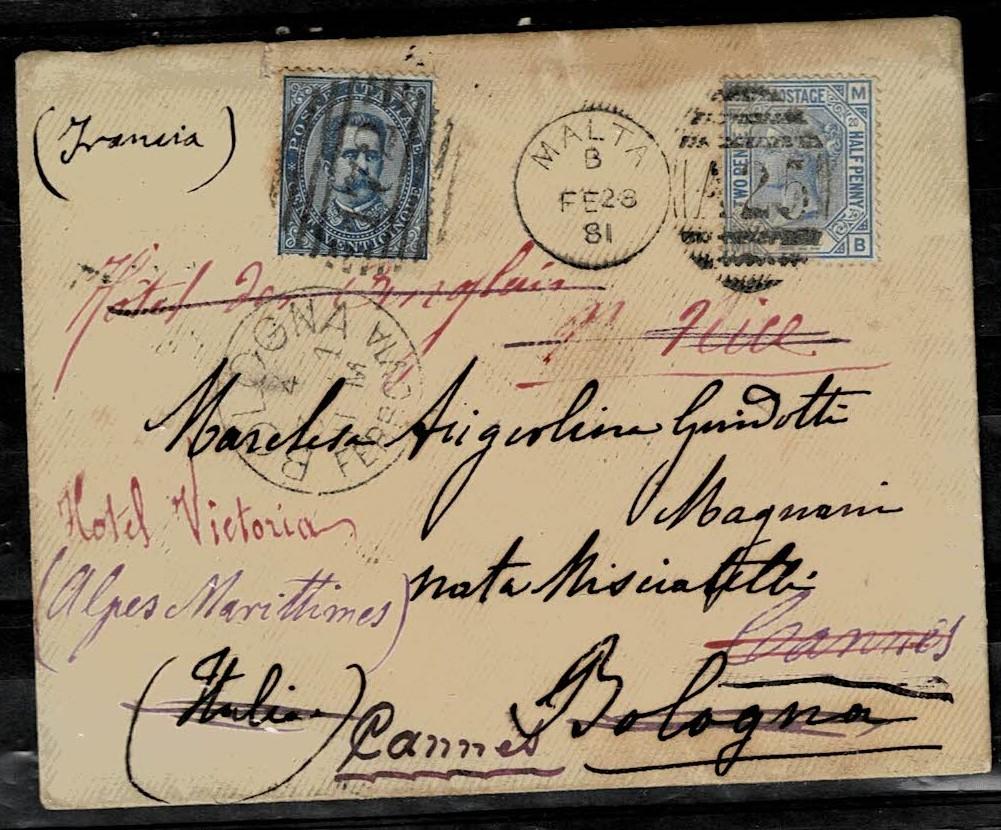 (Francia)
POSTE ITALIANE
MALTA
B
FE 28
81
A25
POSTAGE
TWO PENCE
HALF PENNY
M
20
B
Hotel des Anglais
Nice
BOLOGNA
FERROVIA
4
81
M
Marchesa Angiolina Guidotti
Magnani
nata Misciatelli
Hotel Victoria
(Alpes Marittimes)
Cannes
(Italia)
Bologna
Cannes